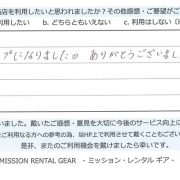 店を利用したいと思われましたか？その他感想・ご要望がご
用したい b. どちらともいえない c. 利用はしない (H
プになりました。ありがとうございまし
いました。戴いたご感想・意見を大切に今後のサービス向上に
ご利用なる方への参考の為、当HP上で利用させて戴くこともござい
是非、またのご利用機会を戴けましたら幸いです。
MISSION RENTAL GEAR - ミッション・レンタル ギア -